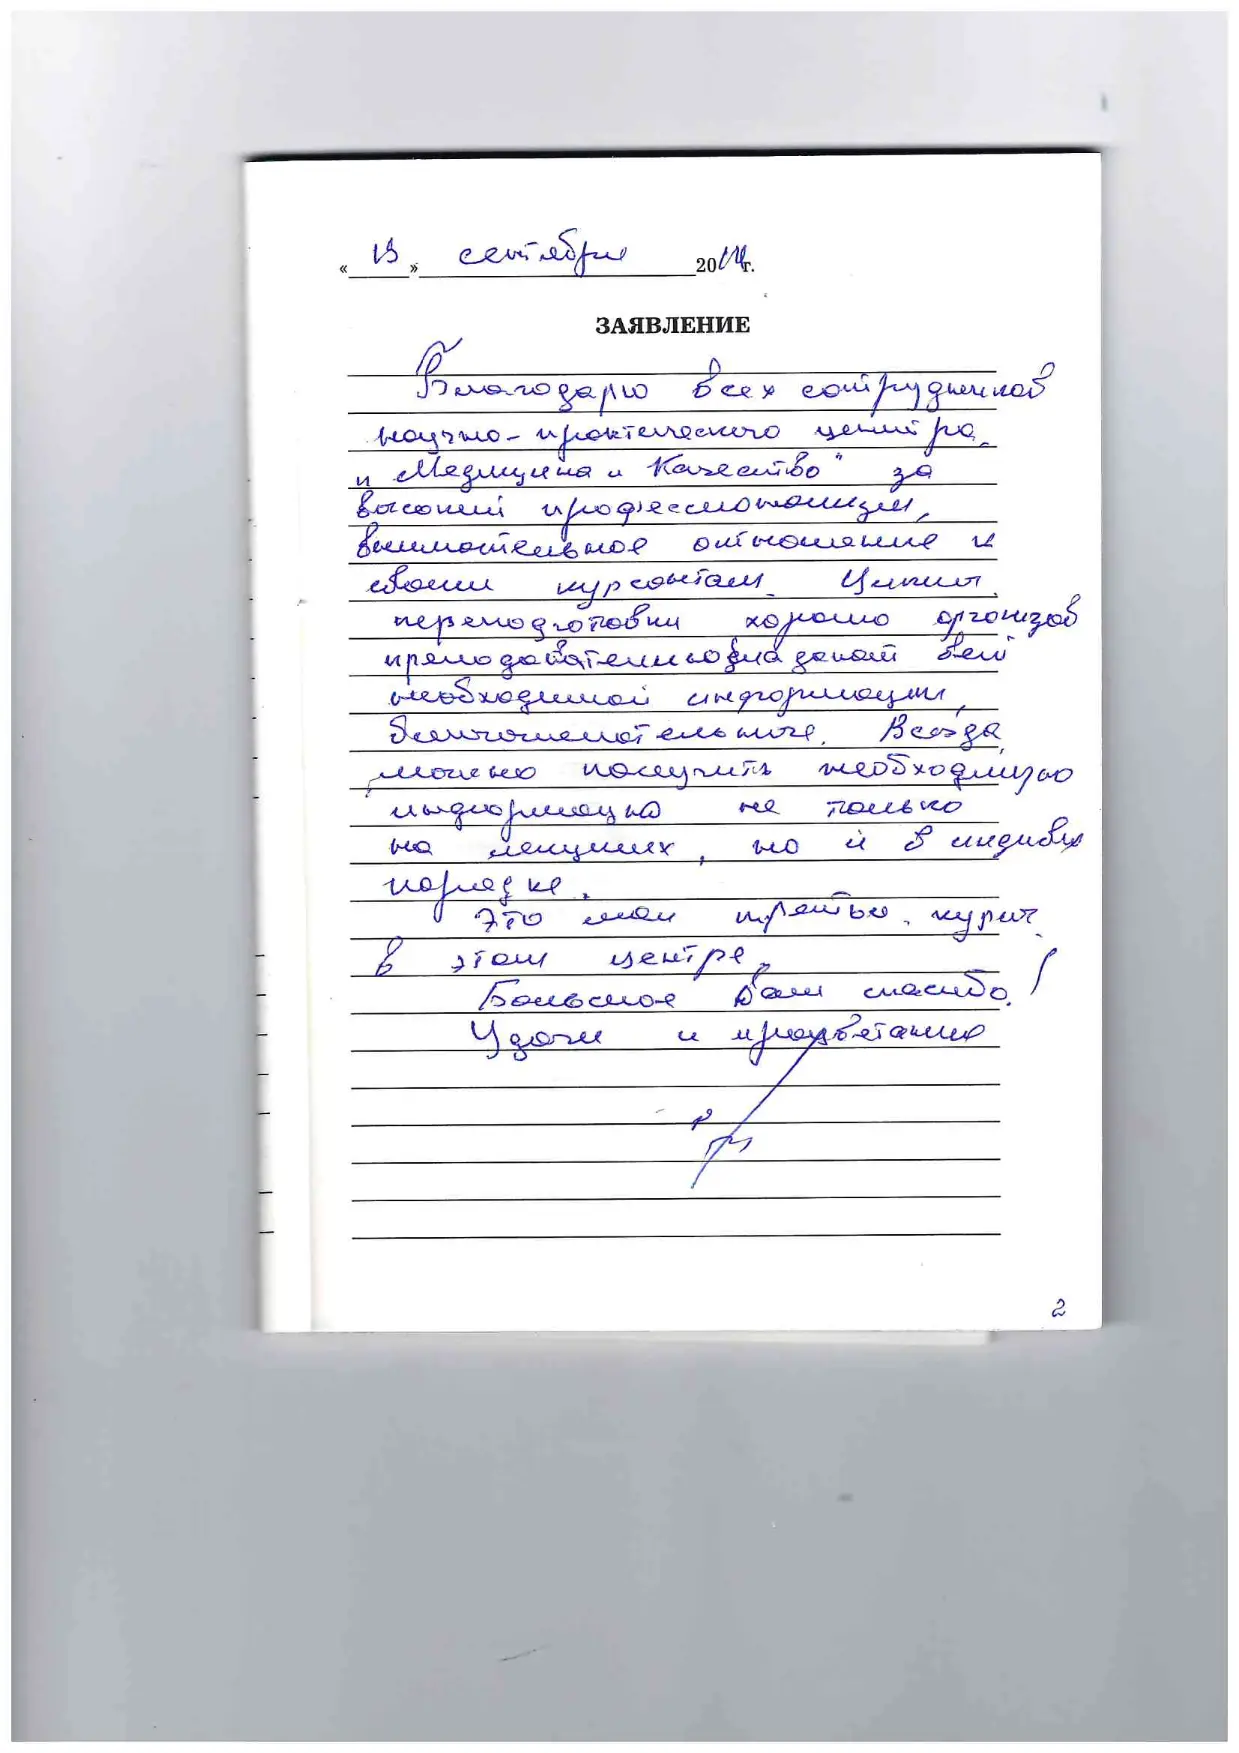 « 13 » сентября 2014 г.
ЗАЯВЛЕНИЕ
Благодарю всех сотрудников
научно-практического центра
"Медицина и Качество" за
высокий профессионализм,
внимательное отношение к
своим курсантам. Циклы
переподготовки хорошо организов
преподаватели дают всю
необходимой информации,
доброжелательные. Всегда
можно получить необходимую
информацию не только
на лекциях, но и в индивид
порядке.
Это мои третьи курсы
в этом центре.
Большое Вам спасибо!
Удачи и процветания
2